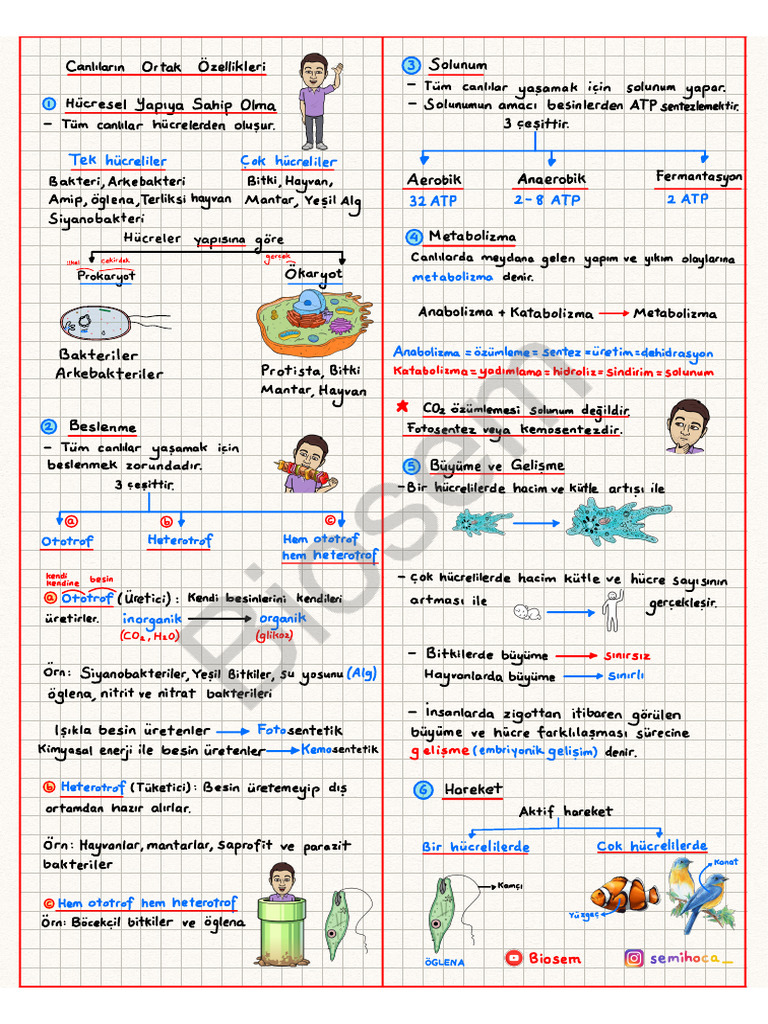 Canlıların Ortak Özellikleri
1 Hücresel Yapıya Sahip Olma
- Tüm canlılar hücrelerden oluşur.
Tek hücreliler
Çok hücreliler
Bakteri, Arkebakteri
Amip, öglena, Terliksi hayvan
Siyanobakteri
Bitki, Hayvan,
Mantar, Yeşil Alg
Hücreler yapısına göre
ilkel çekirdek
Prokaryot
gerçek
Ökaryot
Bakteriler
Arkebakteriler
Protista, Bitki
Mantar, Hayvan
2 Beslenme
- Tüm canlılar yaşamak için
beslenmek zorundadır.
3 çeşittir.
a
b
c
Ototrof
Heterotrof
Hem ototrof
hem heterotrof
kendi kendine besin
a Ototrof (Üretici) : Kendi besinlerini kendileri
üretirler. inorganik → organik
(CO₂, H₂O) (glikoz)
Örn: Siyanobakteriler, Yeşil Bitkiler, su yosunu (Alg)
öglena, nitrit ve nitrat bakterileri
Işıkla besin üretenler → Fotosentetik
Kimyasal enerji ile besin üretenler → Kemosentetik
b Heterotrof (Tüketici) : Besin üretemeyip dış
ortamdan hazır alırlar.
Örn: Hayvanlar, mantarlar, saprofit ve parazit
bakteriler
c Hem ototrof hem heterotrof
Örn: Böcekçil bitkiler ve öglena
3 Solunum
- Tüm canlılar yaşamak için solunum yapar.
- Solunumun amacı besinlerden ATP sentezlemektir.
3 çeşittir.
Aerobik
32 ATP
Anaerobik
2-8 ATP
Fermantasyon
2 ATP
4 Metabolizma
Canlılarda meydana gelen yapım ve yıkım olaylarına
metabolizma denir.
Anabolizma + Katabolizma → Metabolizma
Anabolizma = özümleme = sentez = üretim = dehidrasyon
Katabolizma = yadımlama = hidroliz = sindirim = solunum
★ CO₂ özümlemesi solunum değildir.
Fotosentez veya kemosentezdir.
5 Büyüme ve Gelişme
- Bir hücrelilerde hacim ve kütle artışı ile
- çok hücrelilerde hacim kütle ve hücre sayısının
artması ile gerçekleşir.
- Bitkilerde büyüme → sınırsız
Hayvanlarda büyüme → sınırlı
- İnsanlarda zigottan itibaren görülen
büyüme ve hücre farklılaşması sürecine
gelişme (embriyonik gelişim) denir.
6 Hareket
Aktif hareket
Bir hücrelilerde
Çok hücrelilerde
Kamçı
Kanat
Yüzgeç
ÖGLENA
Biosem
semihoca_
Biosem